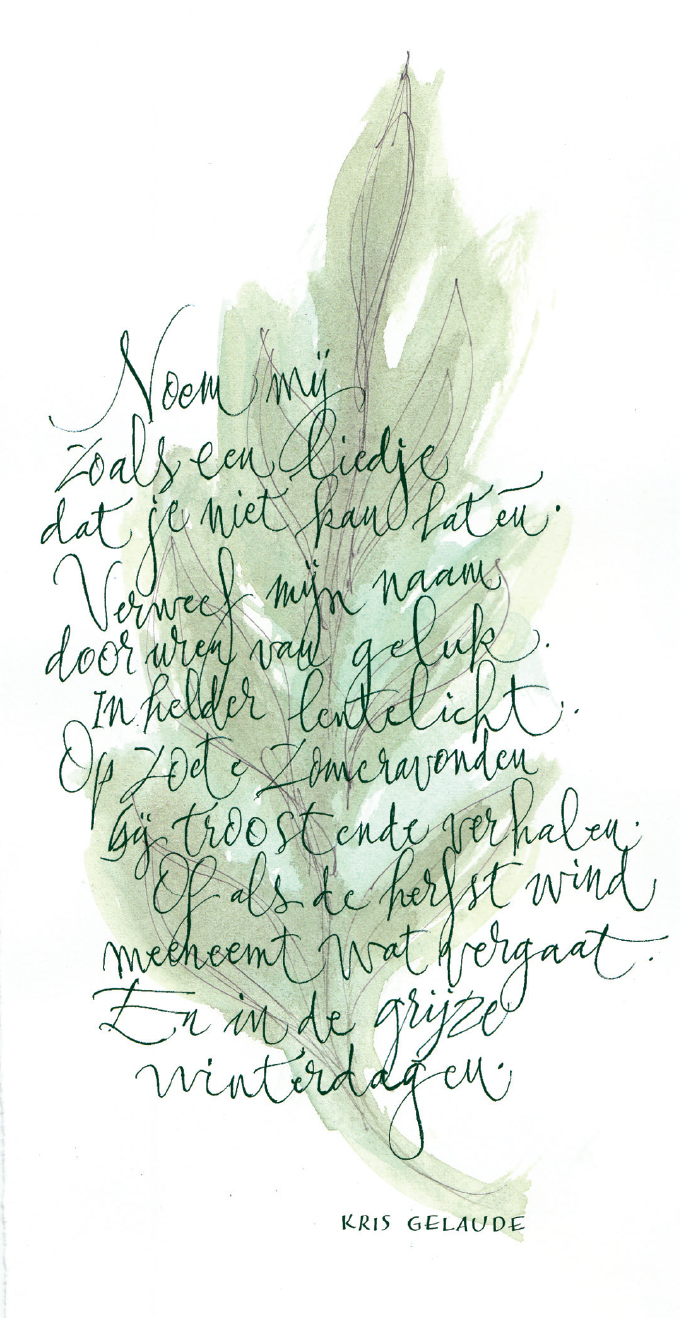 Noem mij
zoals een liedje
dat je niet kan laten.
Verweef mijn naam
door uren van geluk.
In helder lentelicht.
Op zoete zomeravonden
bij troostende verhalen.
Of als de herfst wind
meeneemt wat vergaat.
En in de grijze
winterdagen.
KRIS GELAUDE